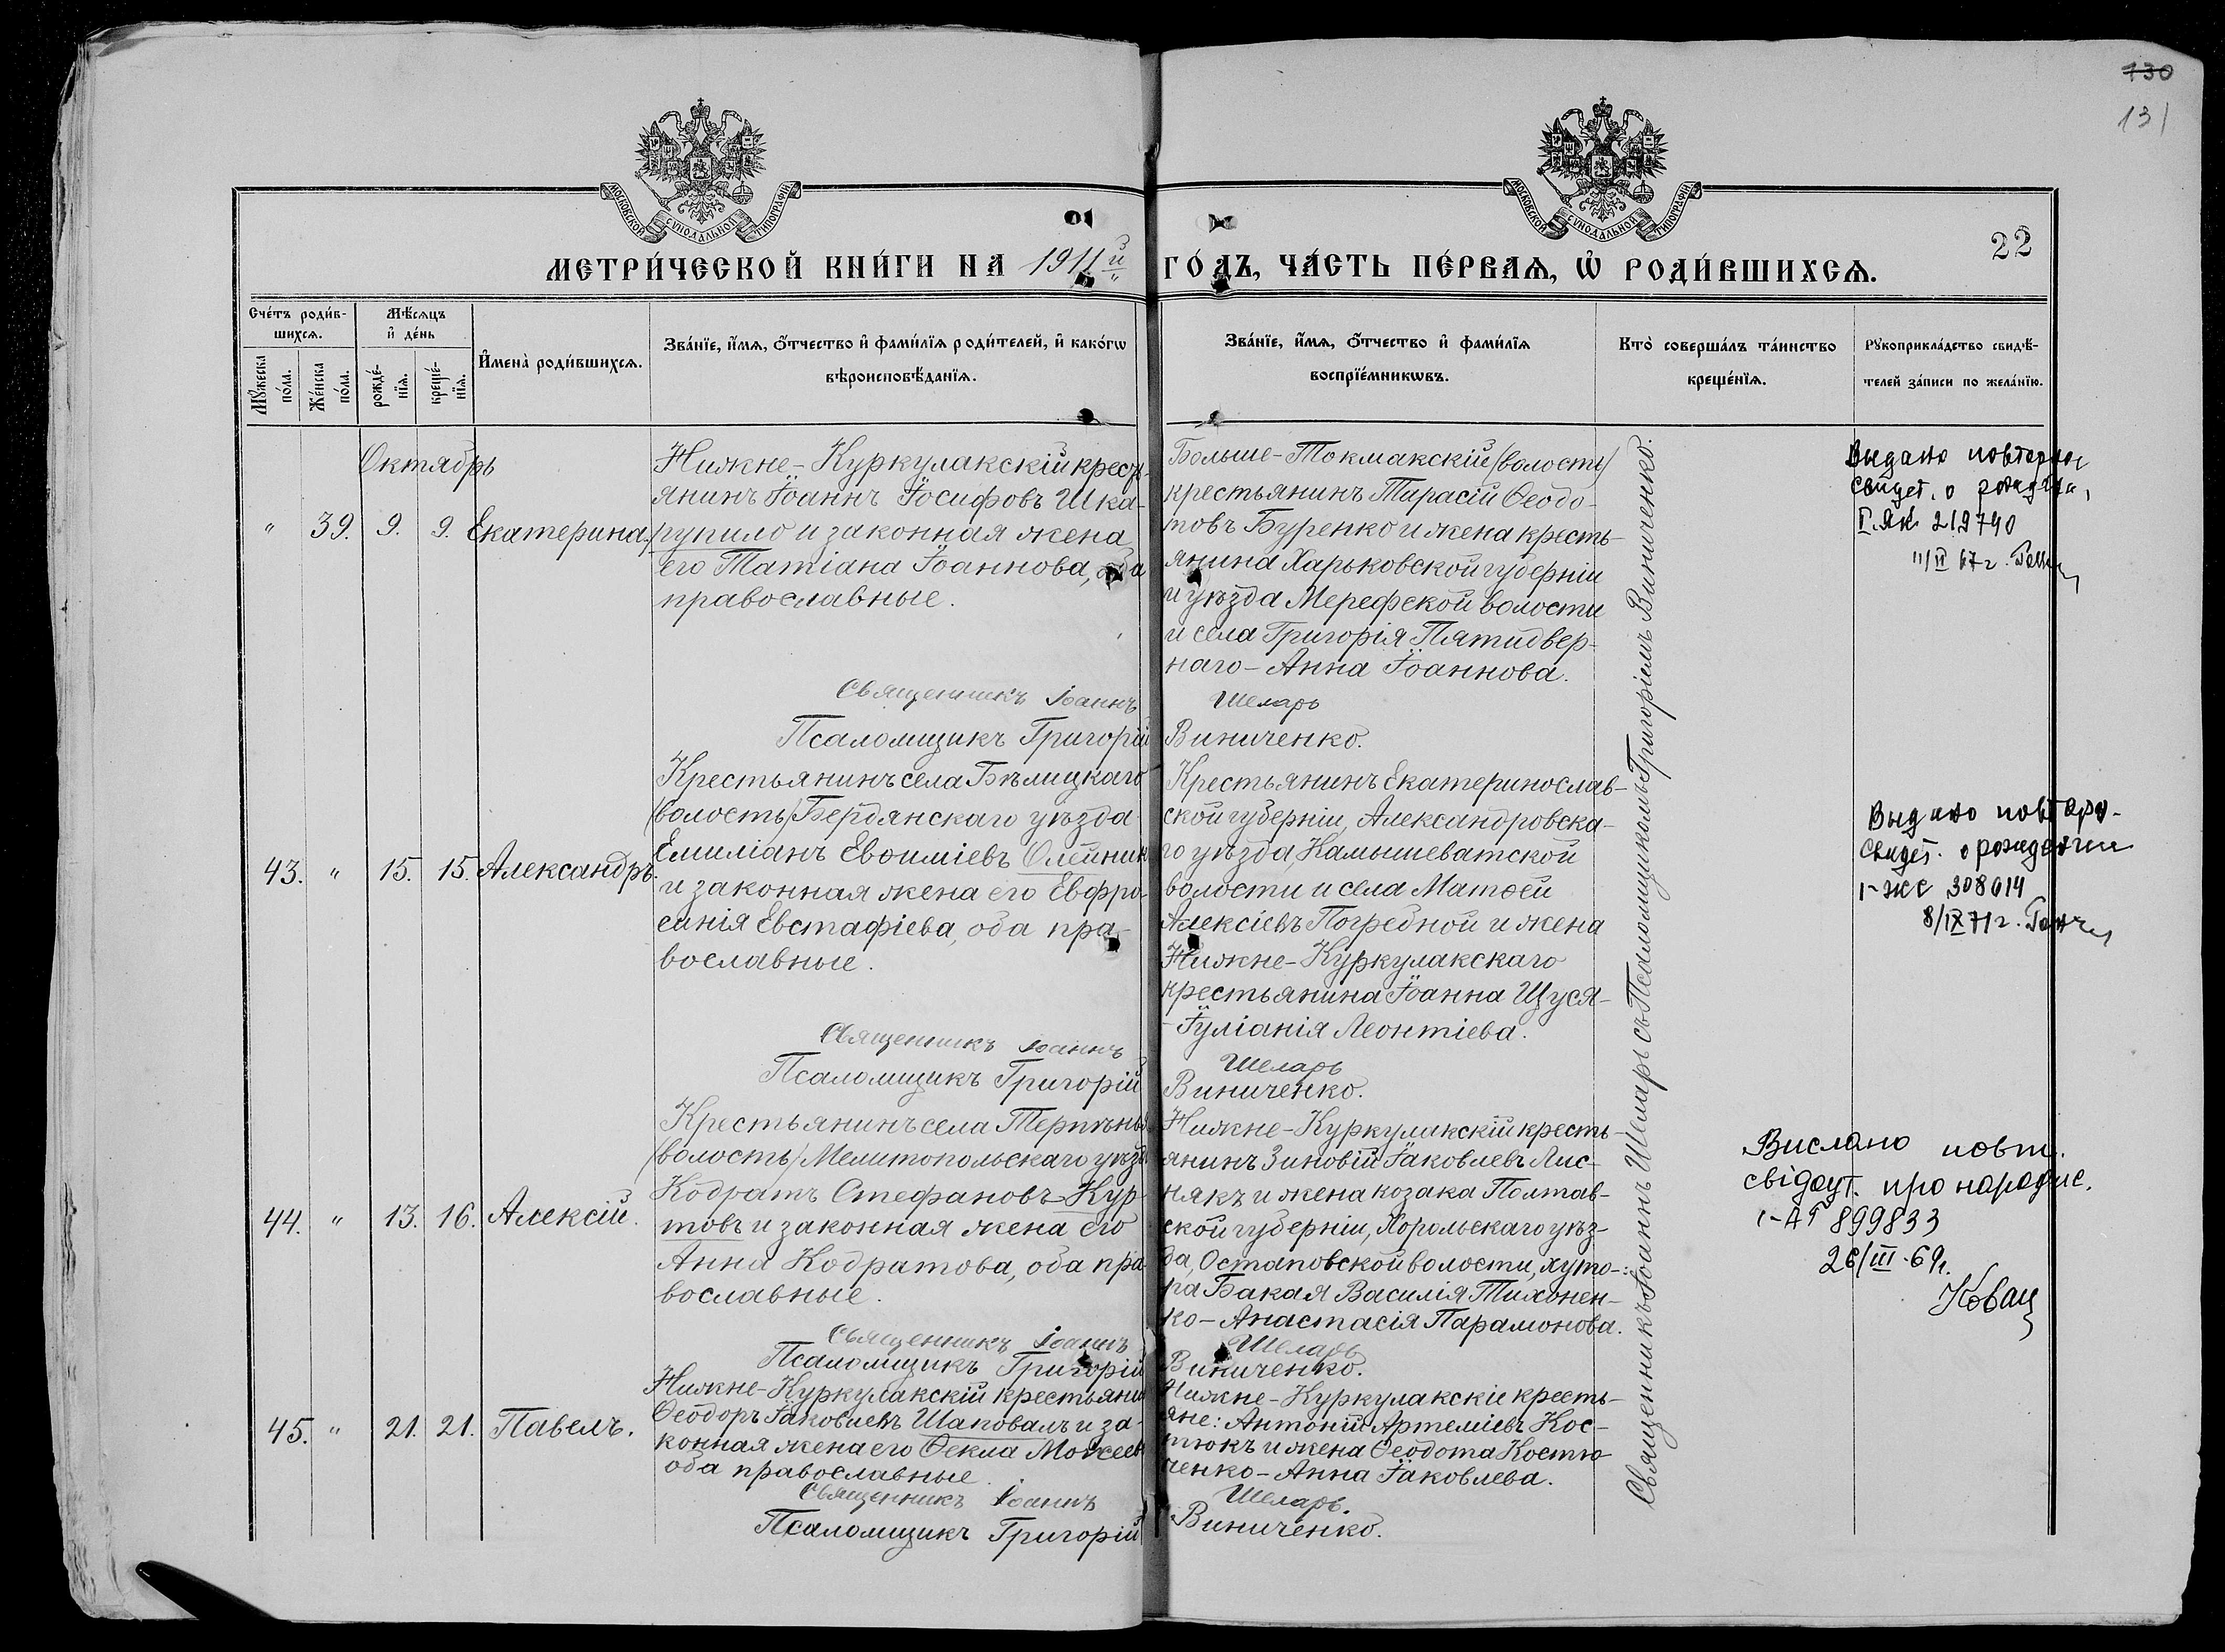 130
131
МОСКОВСКОЙ СѴНОДАЛЬНОЙ ТИПОГРАФІИ
МОСКОВСКОЙ СѴНОДАЛЬНОЙ ТИПОГРАФІИ
22
МЕТРИ́ЧЕСКОЙ КНИ́ГИ НА 1911й ГО́ДЪ, ЧА́СТЬ ПЕ́РВАѦ, Ѡ҆ РОДИ́ВШИХСѦ.
Сче́тъ роди́в-
шихсѧ.
Мꙋ́жеска
по́ла.
Же́нска
по́ла.
Мѣ́сѧцъ
и҆ де́нь
рожде́-
нїѧ.
креще́-
нїѧ.
И҆мена̀ роди́вшихсѧ.
Зва́нїе, и҆́мѧ, ѻ҆́тчество и҆ фами́лїѧ роди́телей, и҆ како́гѡ
вѣроисповѣ́данїѧ.
Зва́нїе, и҆́мѧ, ѻ҆́тчество и҆ фами́лїѧ
воспрїе́мникѡвъ.
Кто̀ соверша́лъ та́инство
креще́нїѧ.
Рꙋкоприкла́дство свидѣ́-
телей за́писи по жела́нїю.
Октябрь
" 39. 9. 9. Екатерина.
Нижне-Куркулакскій кресть-
янинъ Іоаннъ Іосифовъ Шка-
рупило и законная жена
его Татіана Іоаннова, оба
православные.
Больше-Токмакскій (волости)
крестьянинъ Тарасій Ѳеодо-
товъ Буренко и жена кресть-
янина Харьковской губерніи
и уѣзда Мерефской волости
и села Григорія Пятидвер-
наго - Анна Іоаннова.
Выдано повторное
свидет. о рожден.
219740
67г.
Священникъ Іоаннъ Шеларь
Псаломщикъ Григорій Виниченко.
43. " 15. 15. Александръ.
Крестьянинъ села Бѣлицкаго
(волость) Бердянскаго уѣзда
Емиліанъ Евѳиміевъ Олейник
и законная жена его Евфро-
синія Евстафіева, оба пра-
вославные.
Крестьянинъ Екатеринослав-
ской губерніи, Александровска-
го уѣзда, Камышеватской
волости и села Матѳей
Алексіевъ Погребной и жена
Нижне-Куркулакскаго
крестьянина Іоанна Щуся-
- Іуліанія Леонтіева.
Выдано повторн-
свидет. о рождении
I-ЖС 308614
8/IX 71г.
Священникъ Іоаннъ Шеларь
Псаломщикъ Григорій Виниченко.
44. " 13. 16. Алексій.
Крестьянинъ села Терпѣнья
(волость) Мелитопольскаго уѣзда
Кодратъ Стефановъ Кур-
товъ и законная жена его
Анна Кодратова, оба пра-
вославные.
Нижне-Куркулакскій кресть-
янинъ Зиновій Іаковлевъ Лис-
някъ и жена козака Полтав-
ской губерніи, Хорольскаго уѣз-
да, Остаповской волости, хуто-
ра Бакая Василія Тихонен-
ко - Анастасія Парамонова.
Вислано повт.
свідоцт. про народже.
899833
26/III-69г.
Священникъ Іоаннъ Шеларь
Псаломщикъ Григорій Виниченко.
45. " 21. 21. Павелъ.
Нижне-Куркулакскій крестьянин
Ѳеодоръ Іаковлевъ Шаповалъ и за-
конная жена его Ѳекла Моѵсеев
оба православные.
Нижне-Куркулакскіе кресть-
яне: Антоній Артеміевъ Кос-
тюкъ и жена Ѳеодота Костю-
ченко - Анна Іаковлева.
Священникъ Іоаннъ Шеларь.
Псаломщикъ Григорій Виниченко.
Священникъ Іоаннъ Шеларь съ Псаломщикомъ Григоріемъ Виниченко.